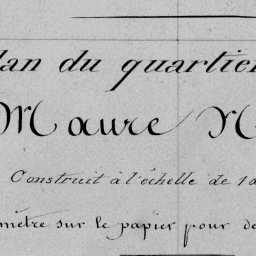 lan du quartier
Maure N
Construit à l'échelle de 1
mètre sur le papier pour de